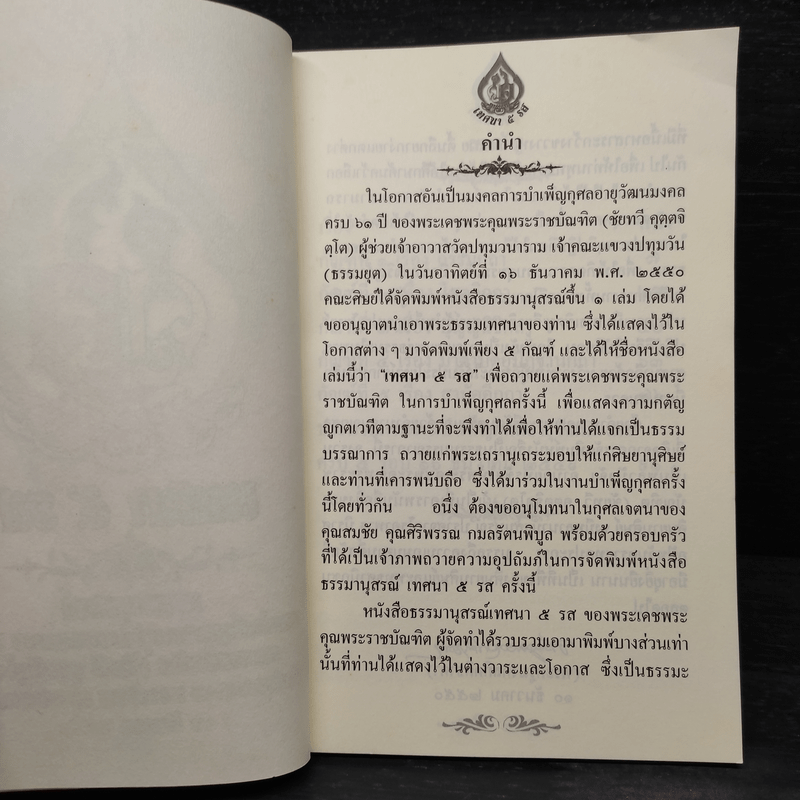 เทศนา ๕ รส
คำนำ
ในโอกาสอันเป็นมงคลการบำเพ็ญกุศลอายุวัฒนมงคล
ครบ ๖๑ ปี ของพระเดชพระคุณพระราชบัณฑิต (ชัยทวี คุตฺตจิ
ตฺโต) ผู้ช่วยเจ้าอาวาสวัดปทุมวนาราม เจ้าคณะแขวงปทุมวัน
(ธรรมยุต) ในวันอาทิตย์ที่ ๑๖ ธันวาคม พ.ศ. ๒๕๕๐
คณะศิษย์ได้จัดพิมพ์หนังสือธรรมานุสรณ์ขึ้น ๑ เล่ม โดยได้
ขออนุญาตนำเอาพระธรรมเทศนาของท่าน ซึ่งได้แสดงไว้ใน
โอกาสต่าง ๆ มาจัดพิมพ์เพียง ๕ กัณฑ์ และได้ให้ชื่อหนังสือ
เล่มนี้ว่า "เทศนา ๕ รส" เพื่อถวายแด่พระเดชพระคุณพระ
ราชบัณฑิต ในการบำเพ็ญกุศลครั้งนี้ เพื่อแสดงความกตัญ
ญูกตเวทีตามฐานะที่จะพึงทำได้เพื่อให้ท่านได้แจกเป็นธรรม
บรรณาการ ถวายแก่พระเถรานุเถระมอบให้แก่ศิษยานุศิษย์
และท่านที่เคารพนับถือ ซึ่งได้มาร่วมในงานบำเพ็ญกุศลครั้ง
นี้โดยทั่วกัน อนึ่ง ต้องขออนุโมทนาในกุศลเจตนาของ
คุณสมชัย คุณศิริพรรณ กมลรัตนพิบูล พร้อมด้วยครอบครัว
ที่ได้เป็นเจ้าภาพถวายความอุปถัมภ์ในการจัดพิมพ์หนังสือ
ธรรมานุสรณ์ เทศนา ๕ รส ครั้งนี้
หนังสือธรรมานุสรณ์เทศนา ๕ รส ของพระเดชพระ
คุณพระราชบัณฑิต ผู้จัดทำได้รวบรวมเอามาพิมพ์บางส่วนเท่า
นั้นที่ท่านได้แสดงไว้ในต่างวาระและโอกาส ซึ่งเป็นธรรมะ